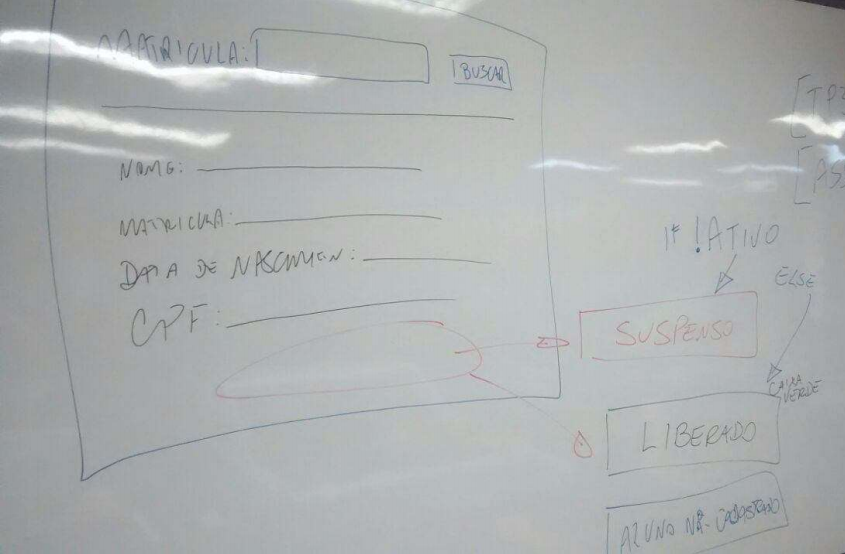 MATRICULA:
BUSCAR
NOME:
MATRICULA:
DATA DE NASCIMEN:
CPF:
[TP
[AS
IF !ATIVO
ELSE
SUSPENSO
CAIXA
VERDE
LIBERADO
ALUNO NÃ- CADASTRADO